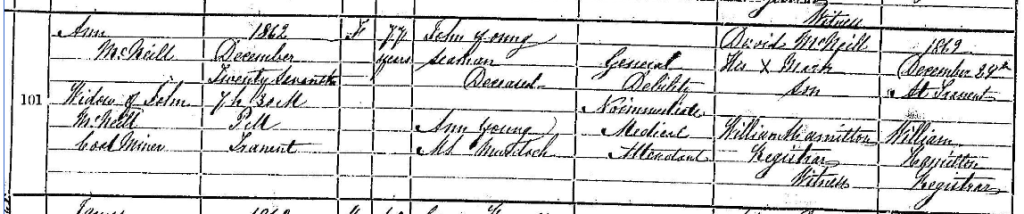 Witness
Ann 1862 F 77 John Young David McNeill 1862
McNeill December years Seaman General His X Mark December 29th
Twenty Seventh Deceased Debility Son At Tranent
101 Widow of John 7h 30m No immediate
McNeill P.M. Ann Young Medical William Hamilton William
Coal Miner Tranent M.S. Murdoch Attendant Registrar Hamilton
Witness Registrar
James 1862